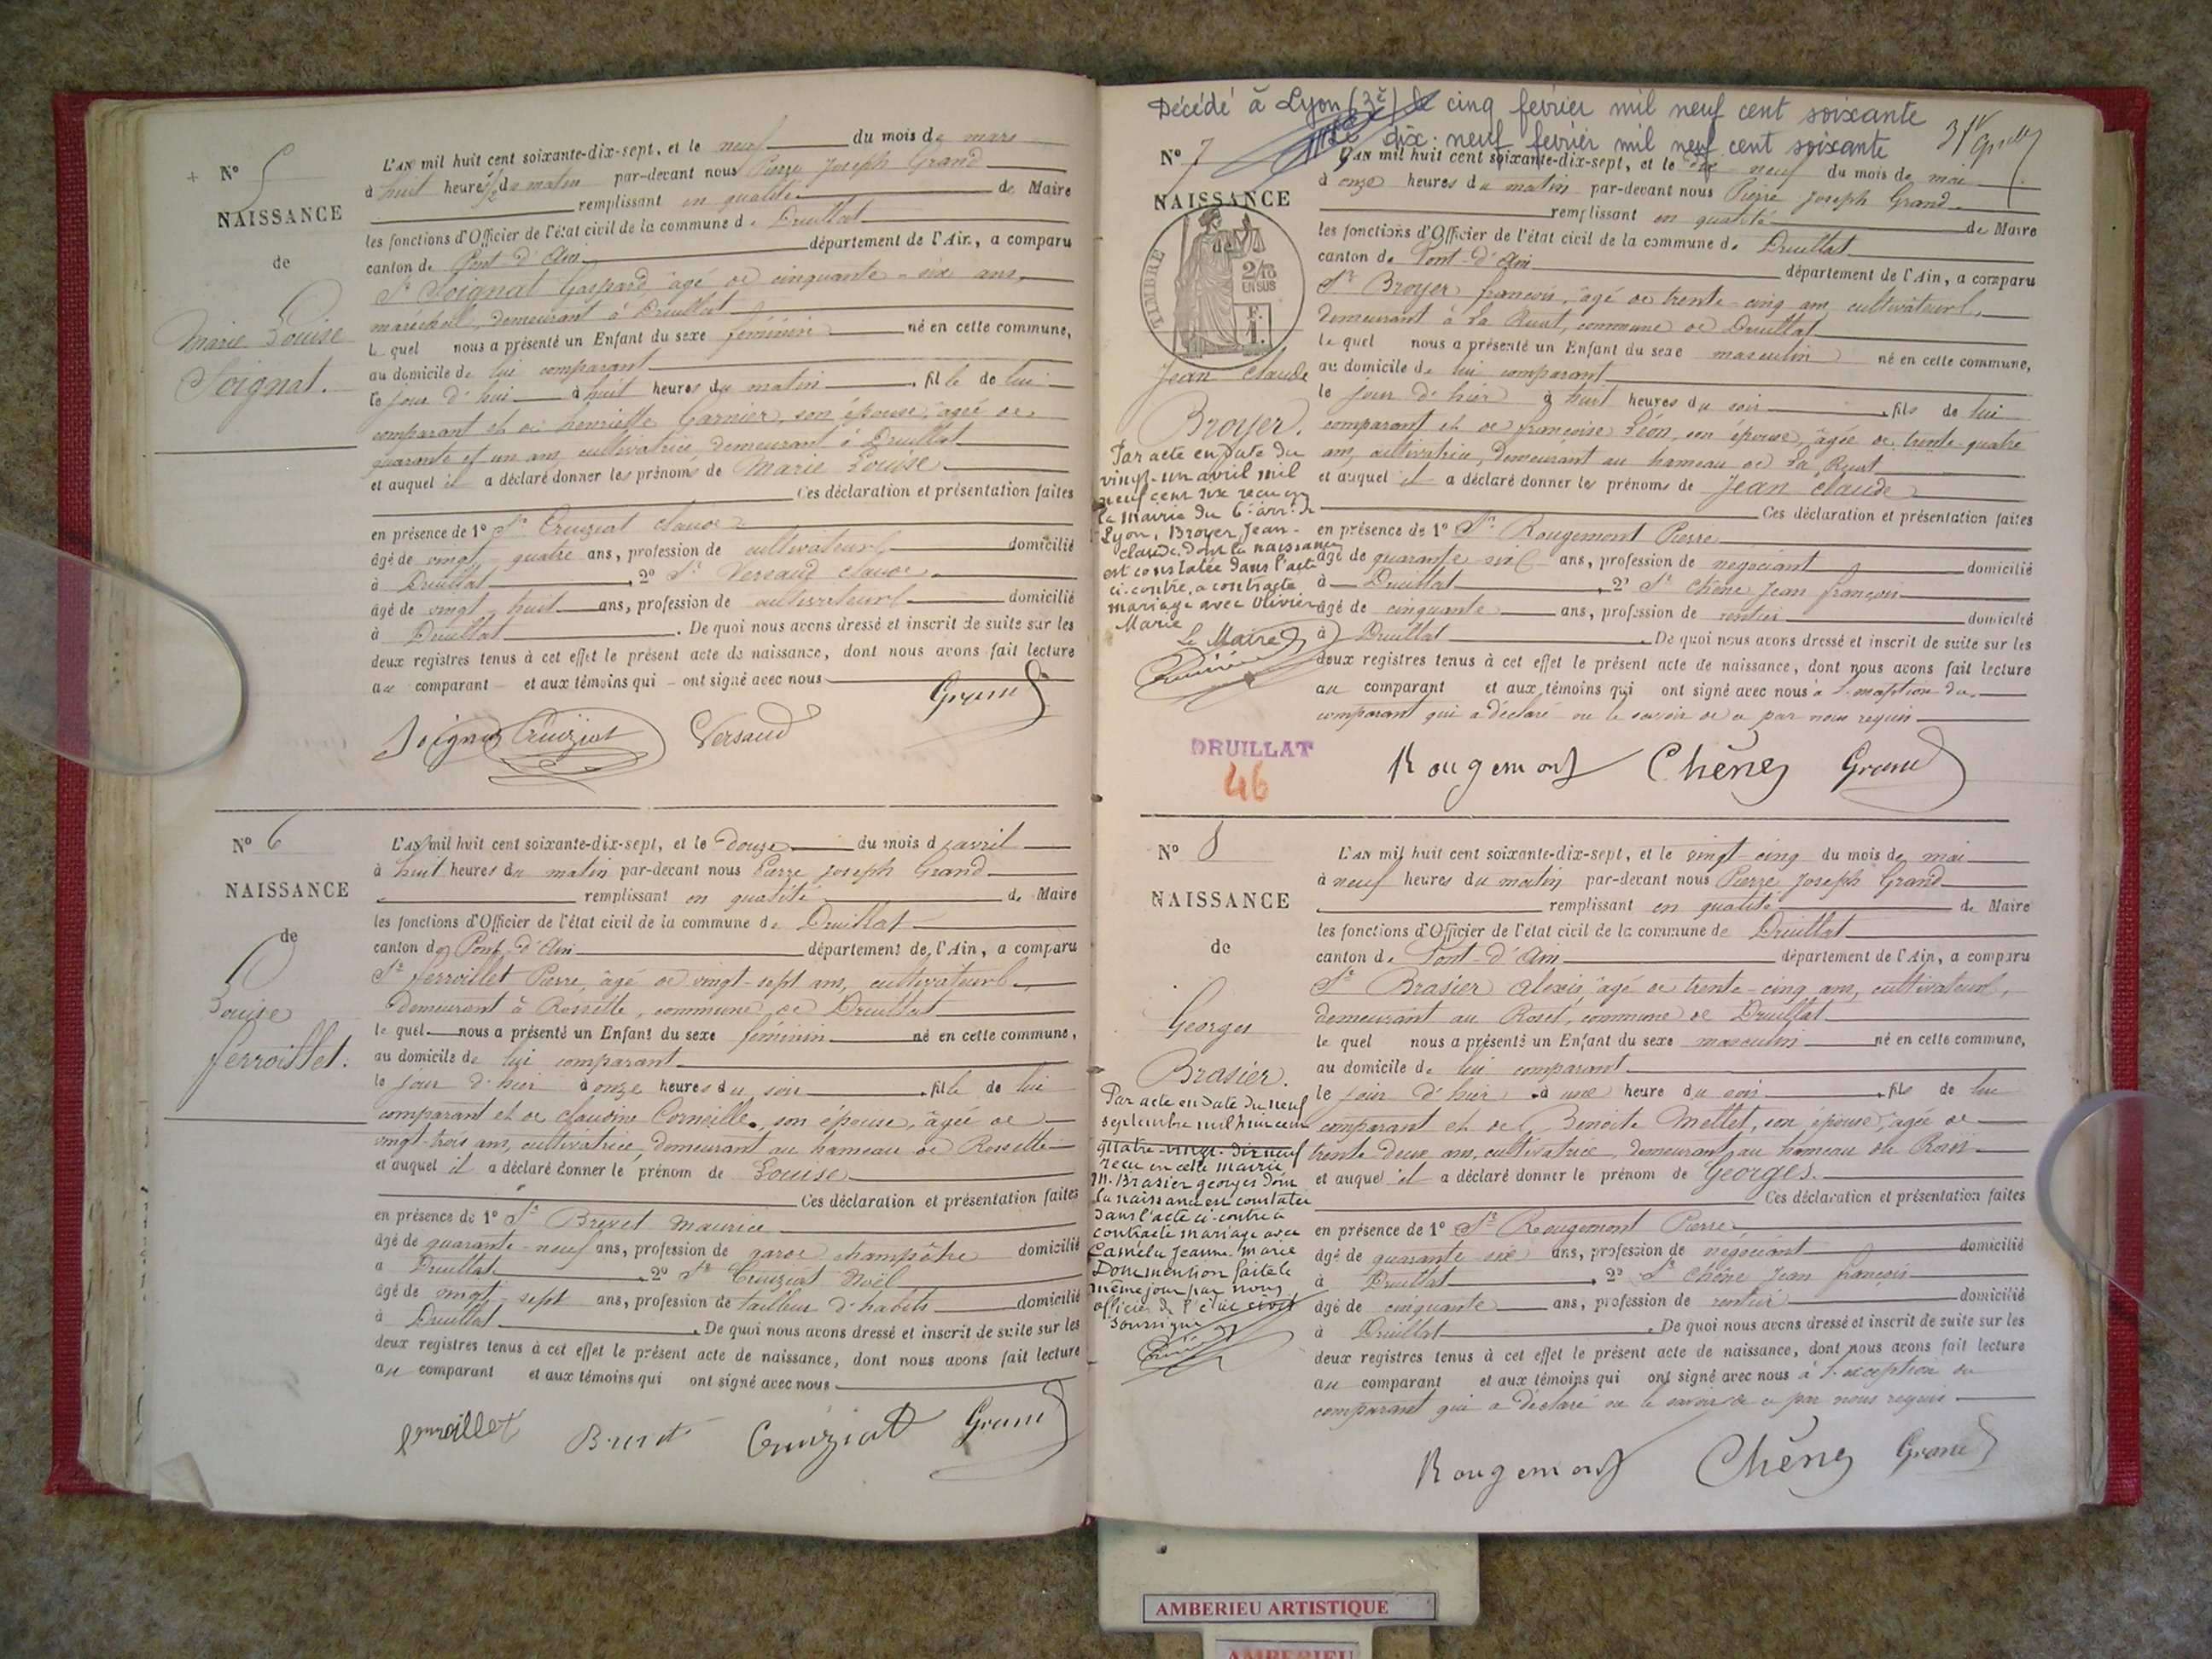 + N° 5
NAISSANCE
de
Marie Louise
Soignat.
L'AN mil huit cent soixante-dix-sept, et le neuf du mois de mars
à huit heures 1/2 du matin par-devant nous Pierre Joseph Grand
remplissant en qualité de Maire
les fonctions d'Officier de l'état civil de la commune de Druillat
canton de Pont-d'Ain département de l'Ain, a comparu
Sr Soignat Gaspard, âgé de cinquante-six ans,
maréchal, demeurant à Druillat
lequel nous a présenté un Enfant du sexe féminin né en cette commune,
au domicile de lui comparant
le jour d'hui à huit heures du matin fille de lui
comparant et de henriette Garnier, son épouse, âgée de
quarante et un ans, cultivatrice, demeurant à Druillat
et auquel il a déclaré donner les prénoms de Marie Louise
Ces déclaration et présentation faites
en présence de 1° Sr Cruiziat claude
âgé de vingt-quatre ans, profession de cultivateur domicilié
à Druillat 2° Sr Versaud claude
âgé de vingt-huit ans, profession de cultivateur domicilié
à Druillat. De quoi nous avons dressé et inscrit de suite sur les
deux registres tenus à cet effet le présent acte de naissance, dont nous avons fait lecture
au comparant et aux témoins qui ont signé avec nous
Soignat Cruiziat Versaud Grand
N° 6
NAISSANCE
de
Louise
Perroillet.
L'AN mil huit cent soixante-dix-sept, et le douze du mois d'avril
à huit heures du matin par-devant nous Pierre Joseph Grand
remplissant en qualité de Maire
les fonctions d'Officier de l'état civil de la commune de Druillat
canton de Pont-d'Ain département de l'Ain, a comparu
Sr Perroillet Pierre, âgé de vingt-sept ans, cultivateur
demeurant à Rossette, commune de Druillat
lequel nous a présenté un Enfant du sexe féminin né en cette commune,
au domicile de lui comparant
le jour d'hier à onze heures du soir fille de lui
comparant et de claudine Corneille, son épouse, âgée de
vingt-trois ans, cultivatrice, demeurant au hameau de Rossette
et auquel il a déclaré donner le prénom de Louise
Ces déclaration et présentation faites
en présence de 1° Sr Brevet Maurice
âgé de quarante-neuf ans, profession de garde champêtre domicilié
à Druillat 2° Sr Cruiziat Noël
âgé de vingt-sept ans, profession de tailleur d'habits domicilié
à Druillat. De quoi nous avons dressé et inscrit de suite sur les
deux registres tenus à cet effet le présent acte de naissance, dont nous avons fait lecture
au comparant et aux témoins qui ont signé avec nous
Perroillet Brevet Cruiziat Grand
Décédé à Lyon (3e) le cinq fevrier mil neuf cent soixante
dix-neuf fevrier mil neuf cent soixante
N° 7
NAISSANCE
de
TIMBRE
2/10
EN SUS
F.
1.
Jean claude
Broyer.
Par acte en date du
vingt-un avril mil
neuf cent six reçu en
la mairie du 6e arrt de
Lyon, Broyer Jean-
claude dont la naissance
est constatée dans l'acte
ci-contre, a contracté
mariage avec Olivier
Marie
Le Maire
L'AN mil huit cent soixante-dix-sept, et le dix-neuf du mois de mai
à onze heures du matin par-devant nous Pierre Joseph Grand
remplissant en qualité de Maire
les fonctions d'Officier de l'état civil de la commune de Druillat
canton de Pont-d'Ain département de l'Ain, a comparu
Sr Broyer françois, âgé de trente-cinq ans, cultivateur,
demeurant à La Ruat, commune de Druillat
lequel nous a présenté un Enfant du sexe masculin né en cette commune,
au domicile de lui comparant
le jour d'hier à huit heures du soir fils de lui
comparant et de françoise Léon, son épouse, âgée de trente-quatre
ans, cultivatrice, demeurant au hameau de La Ruat
et auquel il a déclaré donner les prénoms de Jean claude
Ces déclaration et présentation faites
en présence de 1° Sr Rougemont Pierre
âgé de quarante-six ans, profession de négociant domicilié
à Druillat 2° Sr Chêne Jean françois
âgé de cinquante ans, profession de rentier domicilié
à Druillat. De quoi nous avons dressé et inscrit de suite sur les
deux registres tenus à cet effet le présent acte de naissance, dont nous avons fait lecture
au comparant et aux témoins qui ont signé avec nous à l'exception du
comparant qui a déclaré ne le savoir de ce par nous requis
DRUILLAT
46
Rougemont Chêne Grand
N° 8
NAISSANCE
de
Georges
Brasier.
Par acte en date du neuf
septembre mil huit cent
quatre-vingt-dix neuf
reçu en cette mairie
M. Brasier georges dont
la naissance est constatée
dans l'acte ci-contre a
contracté mariage avec
Camélu Jeanne Marie
Dont mention faite le
même jour par nous
officier de l'état civil
soussigné
L'AN mil huit cent soixante-dix-sept, et le vingt-cinq du mois de mai
à neuf heures du matin par-devant nous Pierre Joseph Grand
remplissant en qualité de Maire
les fonctions d'Officier de l'état civil de la commune de Druillat
canton de Pont-d'Ain département de l'Ain, a comparu
Sr Brasier Alexis, âgé de trente-cinq ans, cultivateur,
demeurant au Roset, commune de Druillat
lequel nous a présenté un Enfant du sexe masculin né en cette commune,
au domicile de lui comparant
le jour d'hier à une heure du soir fils de lui
comparant et de Benoite Mellet, son épouse, âgée de
trente-deux ans, cultivatrice, demeurant au hameau du
et auquel il a déclaré donner le prénom de Georges.
Ces déclaration et présentation faites
en présence de 1° Sr Rougemont Pierre
âgé de quarante six ans, profession de négociant domicilié
à Druillat 2° Sr Chêne Jean françois
âgé de cinquante ans, profession de rentier domicilié
à Druillat. De quoi nous avons dressé et inscrit de suite sur les
deux registres tenus à cet effet le présent acte de naissance, dont nous avons fait lecture
au comparant et aux témoins qui ont signé avec nous à l'exception du
comparant qui a déclaré ne le savoir de ce par nous requis
Rougemont Chêne Grand
AMBERIEU ARTISTIQUE
AMBERIEU